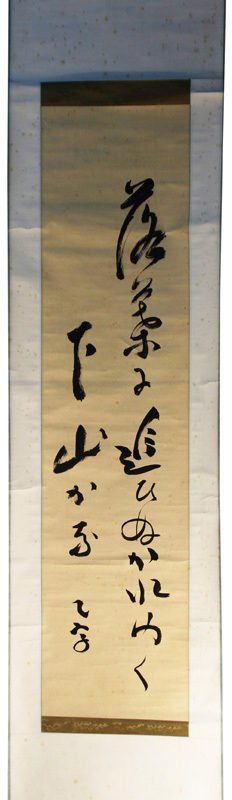 落葉に追ひぬかれゆく
下山かな 乙字